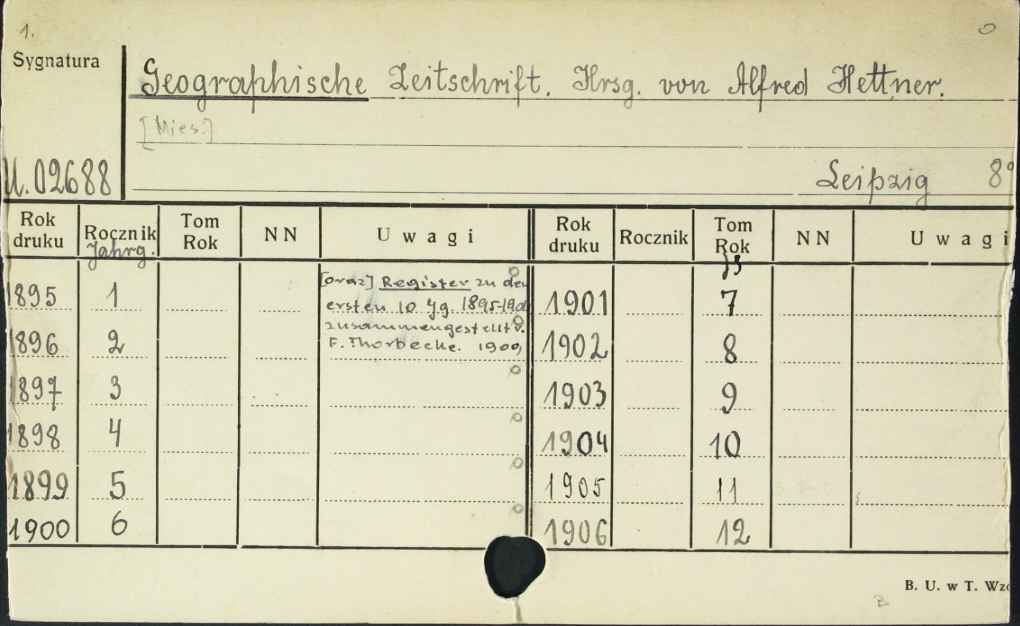 1.
Sygnatura
Geographische Zeitschrift. Hrsg. von Alfred Hettner.
[Mies.]
U.02688
Leipzig 8°
Rok druku Rocznik Jahrg. Tom Rok NN Uwagi Rok druku Rocznik Tom Rok NN Uwagi
1895 1 [oraz] Register zu den 1901 7
ersten 10 Jg. 1895-190
zusammengestellt v.
1896 2 F. Thorbecke. 1909 1902 8
1897 3 1903 9
1898 4 1904 10
1899 5 1905 11
1900 6 1906 12
B. U. w T. Wz